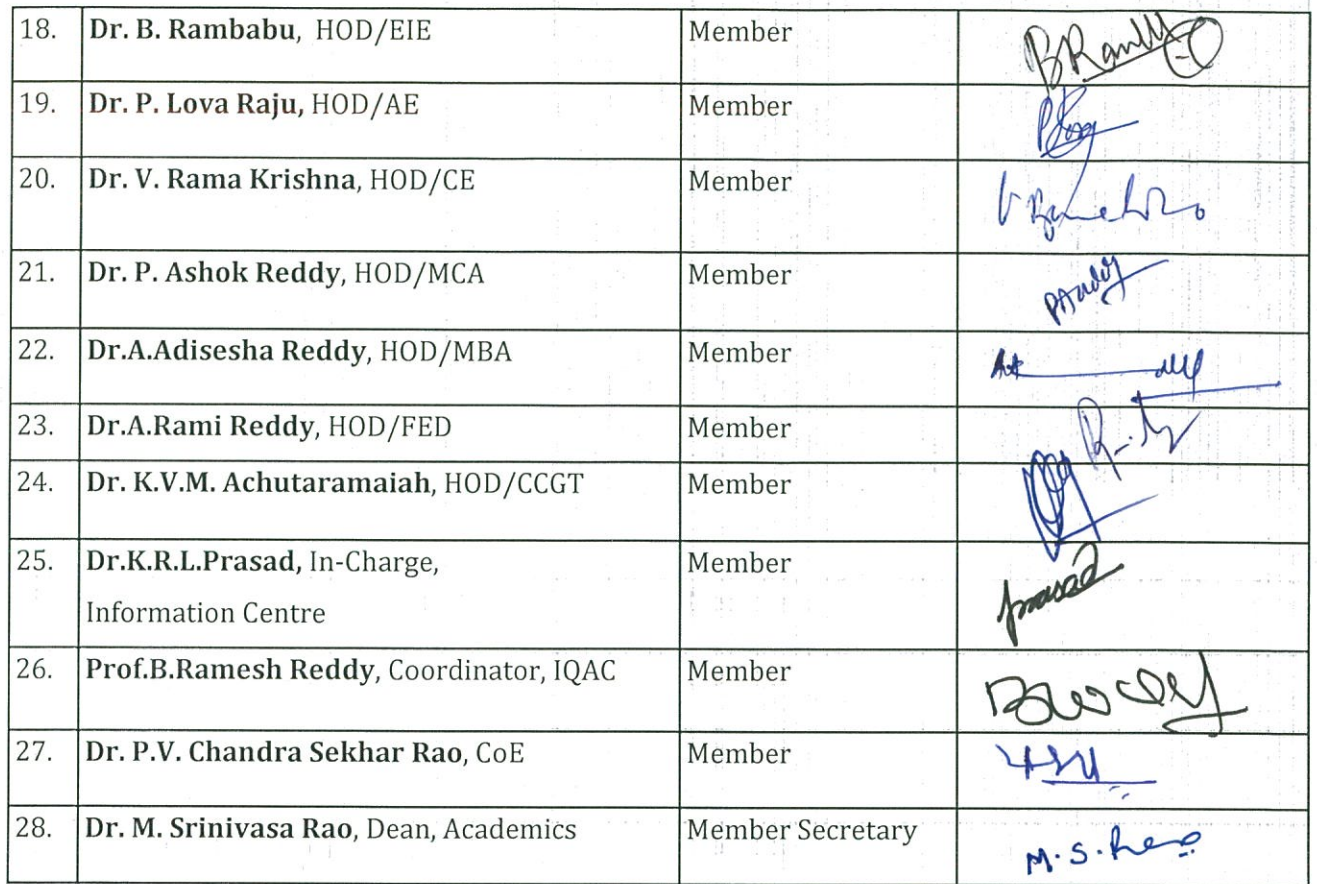 18. Dr. B. Rambabu, HOD/EIE Member
19. Dr. P. Lova Raju, HOD/AE Member
20. Dr. V. Rama Krishna, HOD/CE Member
21. Dr. P. Ashok Reddy, HOD/MCA Member
22. Dr.A.Adisesha Reddy, HOD/MBA Member
23. Dr.A.Rami Reddy, HOD/FED Member
24. Dr. K.V.M. Achutaramaiah, HOD/CCGT Member
25. Dr.K.R.L.Prasad, In-Charge, Member
Information Centre
26. Prof.B.Ramesh Reddy, Coordinator, IQAC Member
27. Dr. P.V. Chandra Sekhar Rao, CoE Member
28. Dr. M. Srinivasa Rao, Dean, Academics Member Secretary M.S.Rao